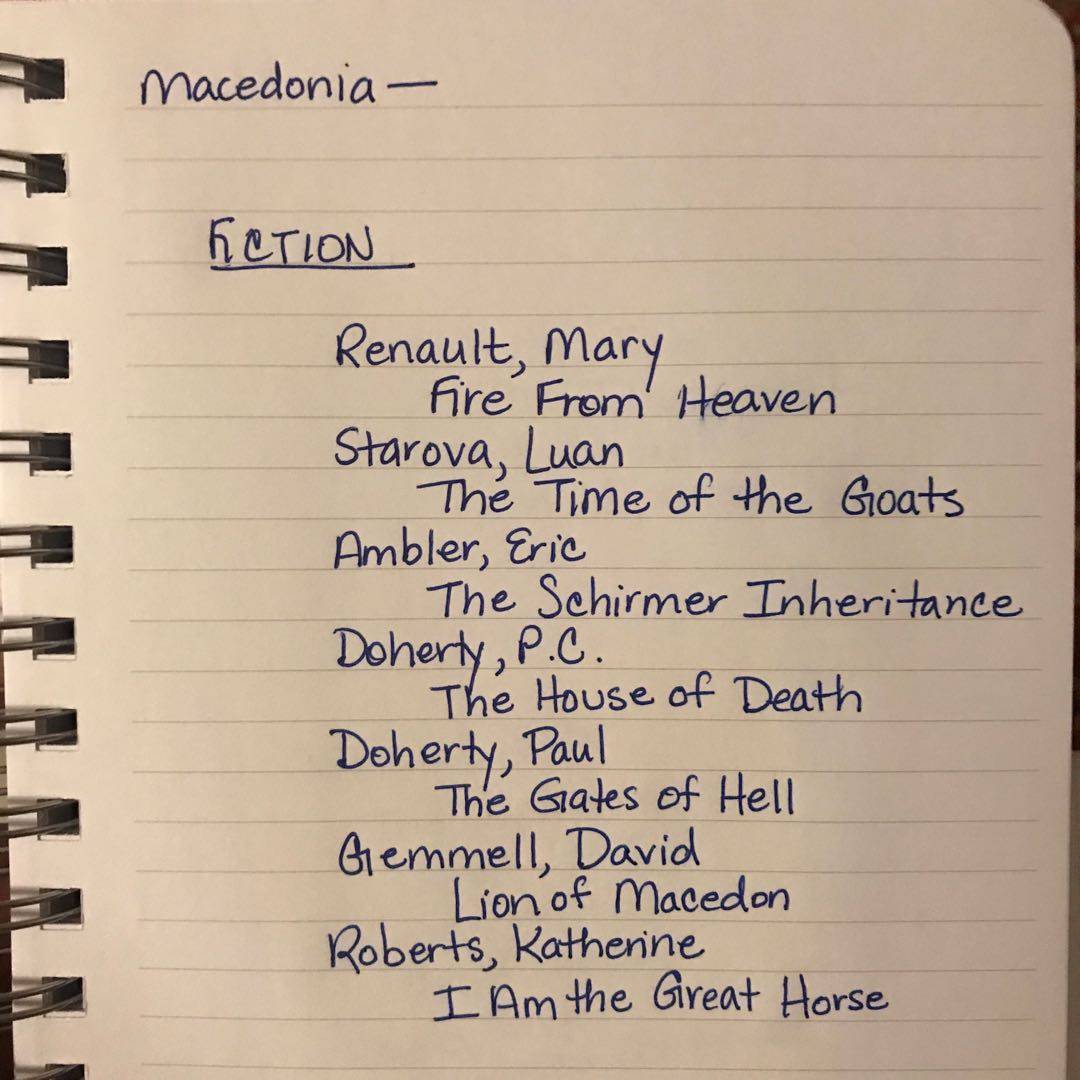 Macedonia —
FICTION
Renault, Mary
Fire From Heaven
Starova, Luan
The Time of the Goats
Ambler, Eric
The Schirmer Inheritance
Doherty, P.C.
The House of Death
Doherty, Paul
The Gates of Hell
Gemmell, David
Lion of Macedon
Roberts, Katherine
I Am the Great Horse